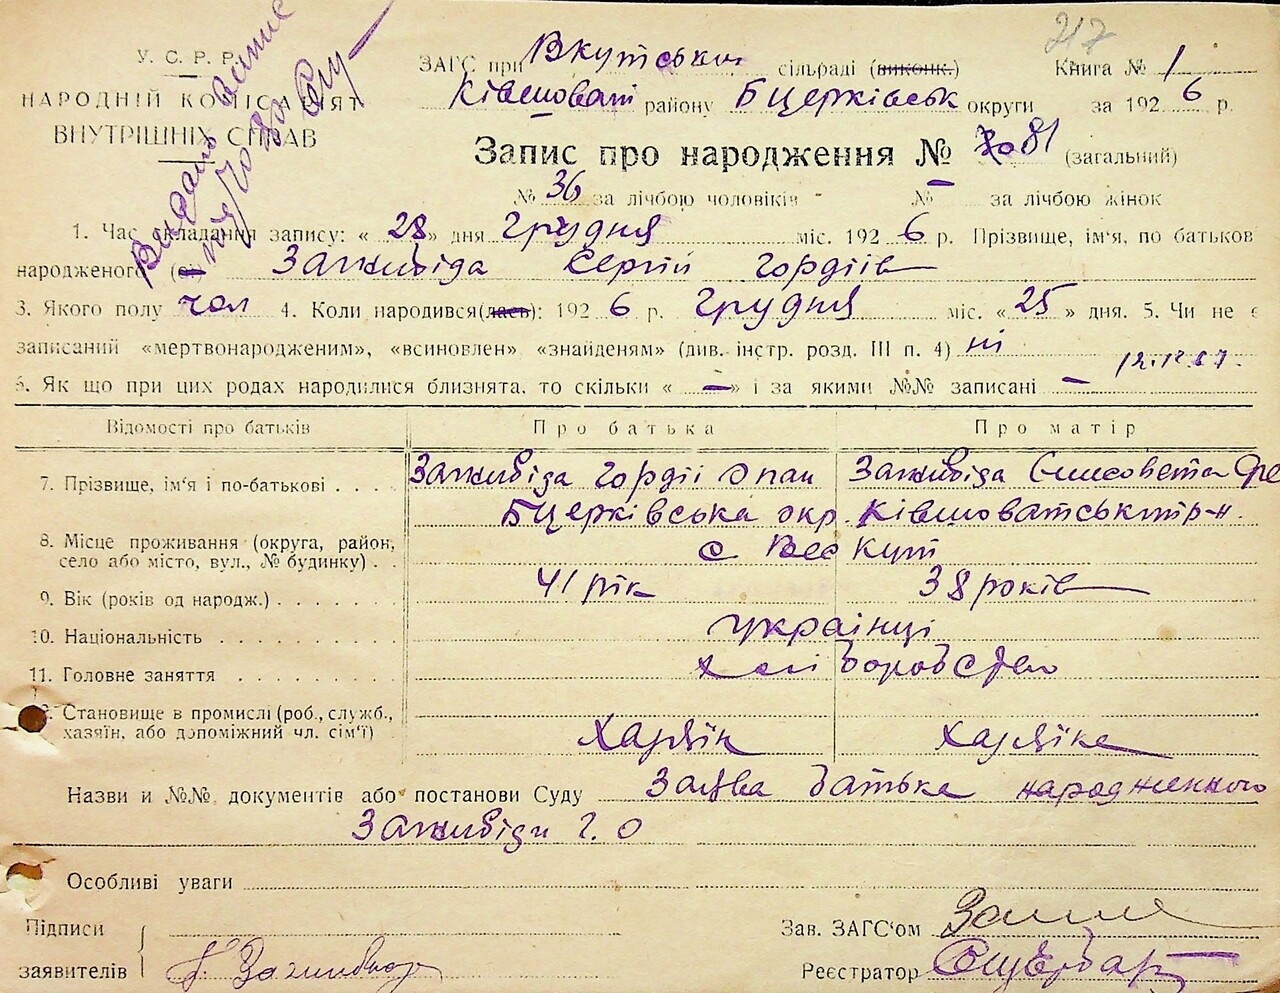 217
У. С. Р. Р.
НАРОДНІЙ КОМІСАРІЯТ
ВНУТРІШНІХ СПРАВ
Видано
ЗАГС при Вкутськии сільраді (виконк.) Книга № 1
Ківшоваті району Бцерківськ округи за 1926 р.
Запис про народження № 81 (загальний)
№ 36 за лічбою чоловіків № за лічбою жінок
1. Час складання запису: « 28 » дня Грудня міс. 1926 р. Прізвище, ім'я, по батьков
народженого (ої) Заживіда Сергій Гордіїв
3. Якого полу чол 4. Коли народився(лась): 1926 р. Грудня міс. «25» дня. 5. Чи не є
записаний «мертвонародженим», «всиновлен» «знайденям» (див. інстр. розд. III п. 4) ні
6. Як що при цих родах народилися близнята, то скільки « — » і за якими №№ записані —
Відомості про батьків Про батька Про матір
7. Прізвище, ім'я і по-батькові Заживіда Гордій Опан Заживіда
Бцерківська окр. Ківшоватський р-н.
8. Місце проживання (округа, район, село або місто, вул., № будинку) с Кут
9. Вік (років од народж.) 41 рік 38 років
10. Національність українці
11. Головне заняття хліборобство
12. Становище в промислі (роб., служб., хазяїн, або допоміжний чл. сім'ї) Хазяїн Хазяйка
Назви и №№ документів або постанови Суду Заява батька народженного
Заживіди Г. О
Особливі уваги
Підписи
заявителів
Зав. ЗАГС'ом
Реєстратор